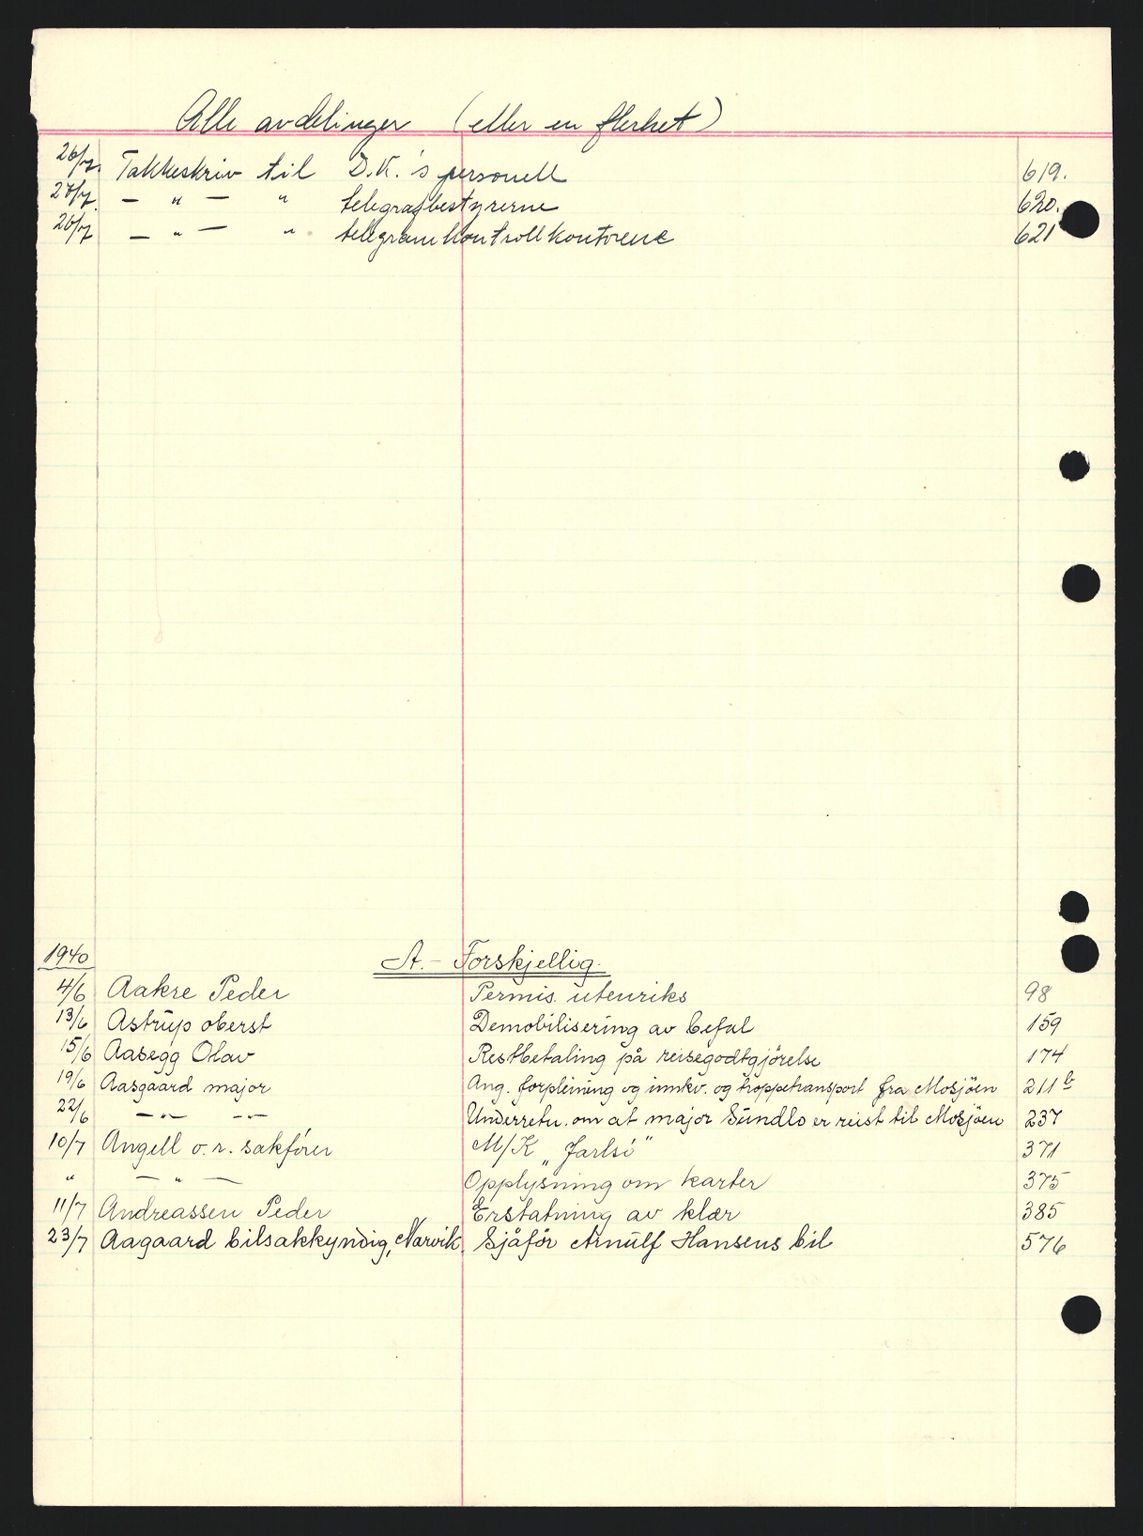 Alle avdelinger (eller en flerhet)
26/7. Takkeskriv til D.K.'s personell 619.
27/7. — " — " telegrafbestyrerne 620.
26/7 — " — " telegramkontrollkontorene 621
1940 A.- Forskjellig.
4/6 Aakre Peder Permis. utenriks 98
13/6 Astrup oberst Demobilisering av befal 159
15/6 Aasegg Olav Restbetaling på reisegodtgjörelse 174
19/6 Aasgaard major Ang. forpleining og innkv. og troppetransport fra Mosjöen 211 b
22/6 —"— —"— Underretn. om at major Sundlo er reist til Mosjöen 237
10/7 Angell o.r. sakförer M/K „Jarlsö" 371
" — " — Opplysning om karter 375
11/7 Andreassen Peder Erstatning av klær 385
23/7 Aagaard bilsakkyndig, Narvik. Sjåför Arnulf Hansens bil 576